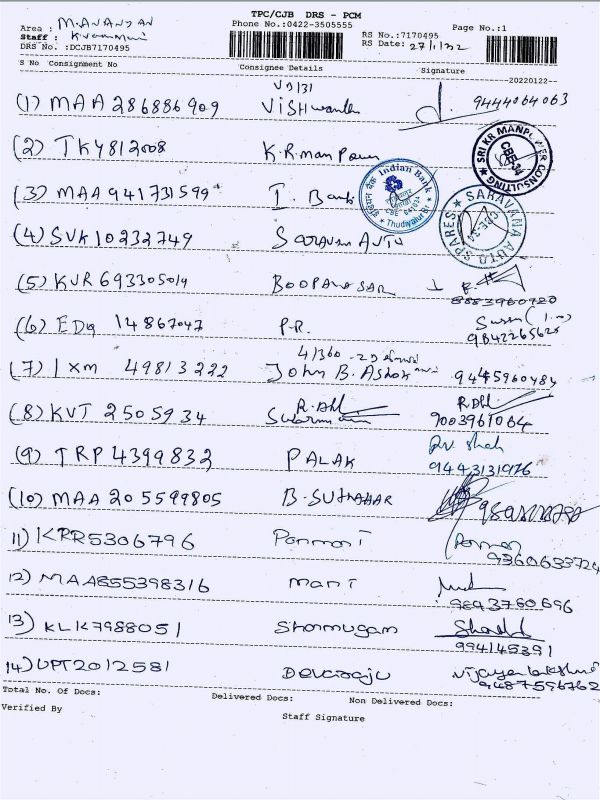 TPC/CJB DRS - PCM
Area : M.AVANYAN
Phone No.:0422-3505555
Page No.:1
Staff :
RS No.:7170495
DRS No. :DCJB7170495
RS Date: 27/1/22
S No Consignment No Consignee Details Signature
20220122--
VD/31
(1) MAA 286886909 Vishwanth 9444064063
(2) TKY812008 K.R.man Power
SRI KR MANPOWER CONSULTING CBE-34
(3) MAA 941731599 I. Bank
इंडियन बैंक Indian Bank
CBE - 641034
Thudiyalur Br.
(4) SVK10232749 Saravan Auto
SARAVANA AUTO SPARES CBE-34
(5) KUR 693305019 BOOPANASAR
8883960920
(6) EDQ 14867047 P.R.
9842265628
41360
(7) IXM 49813222 John B. Ashok 9445960484
(8) KVT 2505934
9003961064
(9) TRP 4399832 PALAK
Shah
9443131976
(10) MAA 205599805 B. SUTHAHAR
11) KRR5306796 Ponmani
9360633724
12) MAA855398316 mani
9893780696
13) KLK7988051 Shanmugam
994145391
14) UPT2012581 Devaraju Vijayalakshmi
9487596762
Total No. Of Docs: Delivered Docs: Non Delivered Docs:
Verified By
Staff Signature